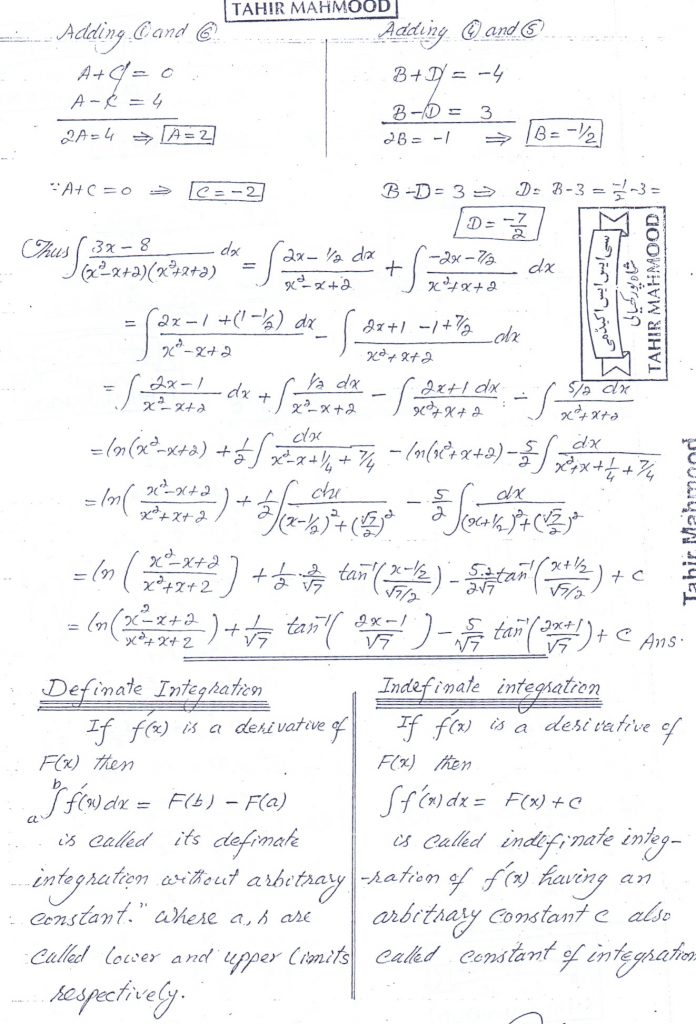 TAHIR MAHMOOD
Adding ① and ⑥
A + C = 0
A - C = 4
2A = 4 ⇒ A = 2
∵ A + C = 0 ⇒ C = -2
Adding ④ and ⑤
B + D = -4
B - D = 3
2B = -1 ⇒ B = -1/2
B - D = 3 ⇒ D = B - 3 = -1/2 - 3 =
D = -7/2
Thus ∫ 3x - 8 / (x² - x + 2)(x² + x + 2) dx = ∫ 2x - 1/2 dx / x² - x + 2 + ∫ -2x - 7/2 / x² + x + 2 dx
= ∫ 2x - 1 + (1 - 1/2) dx / x² - x + 2 - ∫ 2x + 1 - 1 + 7/2 / x² + x + 2 dx
= ∫ 2x - 1 / x² - x + 2 dx + ∫ 1/2 dx / x² - x + 2 - ∫ 2x + 1 dx / x² + x + 2 - ∫ 5/2 dx / x² + x + 2
= ln(x² - x + 2) + 1/2 ∫ dx / x² - x + 1/4 + 7/4 - ln(x² + x + 2) - 5/2 ∫ dx / x² + x + 1/4 + 7/4
= ln( x² - x + 2 / x² + x + 2 ) + 1/2 ∫ dx / (x - 1/2)² + (√7/2)² - 5/2 ∫ dx / (x + 1/2)² + (√7/2)²
= ln ( x² - x + 2 / x² + x + 2 ) + 1/2 · 2/√7 tan⁻¹( x - 1/2 / √7/2 ) - 5·2 / 2√7 tan⁻¹( x + 1/2 / √7/2 ) + c
= ln( x² - x + 2 / x² + x + 2 ) + 1/√7 tan⁻¹( 2x - 1 / √7 ) - 5/√7 tan⁻¹( 2x + 1 / √7 ) + c Ans.
TAHIR MAHMOOD
Tahir Mahmood
Definate Integration
If f′(x) is a derivative of
F(x) then
∫ₐᵇ f′(x) dx = F(b) - F(a)
is called its definate
integration without arbitrary
constant." where a, b are
called lower and upper limits
respectively.
Indefinate integration
If f′(x) is a derivative of
F(x) then
∫ f′(x) dx = F(x) + c
is called indefinate integ-
-ration of f′(x) having an
arbitrary constant c also
called constant of integration